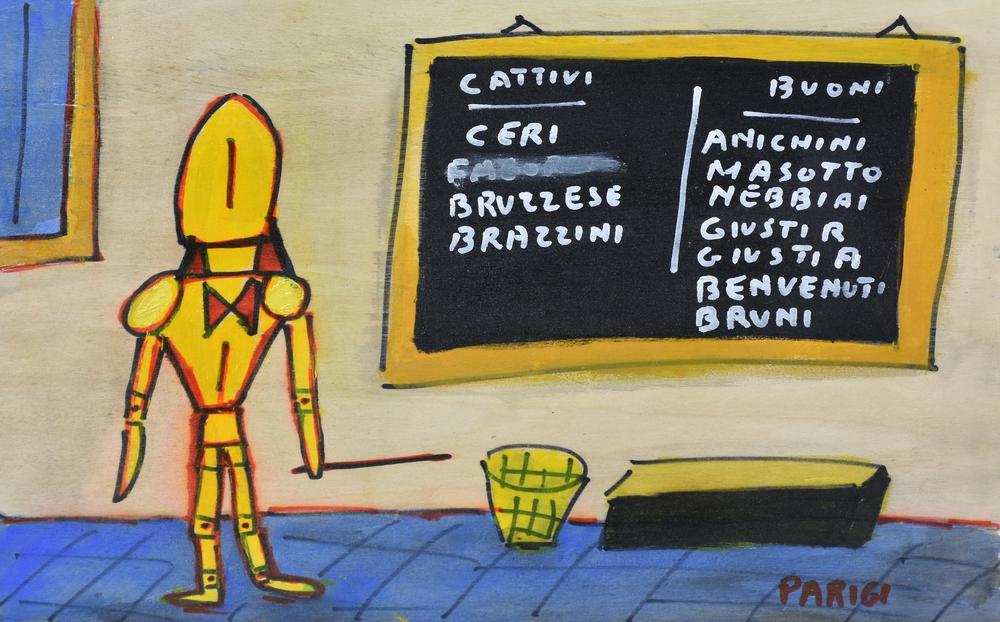 CATTIVI
CERI
BRUZZESE
BRAZZINI
BUONI
ANICHINI
MASOTTO
NEBBIAI
GIUSTI R
GIUSTI A
BENVENUTI
BRUNI
PARIGI